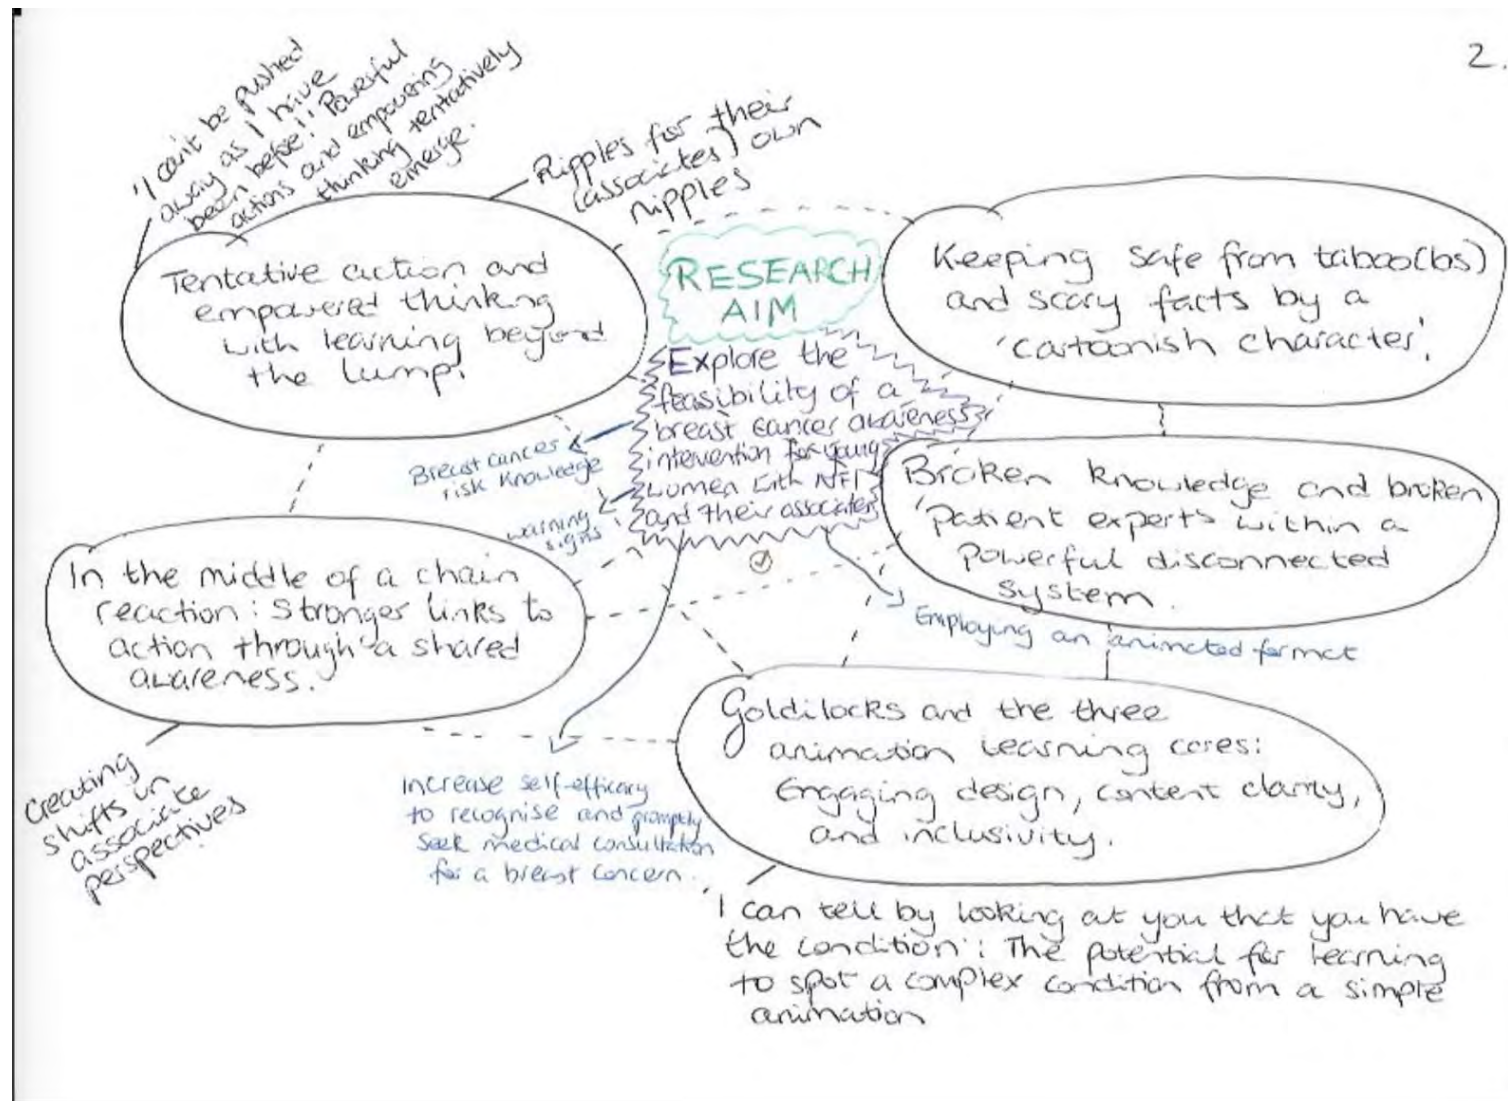 2.
'I can't be pushed
away as I have
been before': Powerful
actions and empowering
thinking tentatively
emerge.
Ripples for their
(associates) own
ripples
Tentative action and
empowered thinking
with learning beyond
the lump.
RESEARCH
AIM
Explore the
feasibility of a
breast cancer awareness
intervention for young
women with NF1
and their associates
Keeping safe from taboo(bs)
and scary facts by a
'cartoonish character'.
Breast cancer
risk knowledge
warning
signs
Broken knowledge and broken
'patient experts' within a
powerful disconnected
system.
In the middle of a chain
reaction: Stronger links to
action through a shared
awareness.
Employing an animated format
Goldilocks and the three
animation learning cores:
Engaging design, content clarity,
and inclusivity.
Creating
shifts in
associate
perspectives
Increase self-efficacy
to recognise and promptly
seek medical consultation
for a breast concern.
'I can tell by looking at you that you have
the condition': The potential for learning
to spot a complex condition from a simple
animation